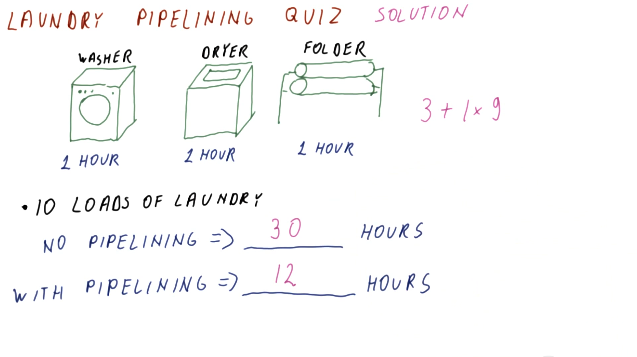 LAUNDRY PIPELINING QUIZ SOLUTION
WASHER DRYER FOLDER
3 + 1 × 9
1 HOUR 1 HOUR 1 HOUR
• 10 LOADS OF LAUNDRY
NO PIPELINING => 30 HOURS
WITH PIPELINING => 12 HOURS